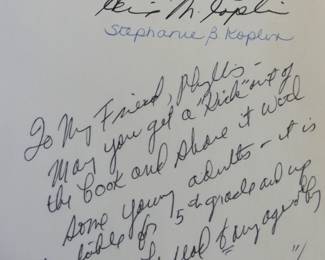 M. Koplin
Stephanie B Koplin
To My Friend, Phyllis -
May you get a "kick" out of
the book and share it with
some young adults - it is
5th grade and up
read